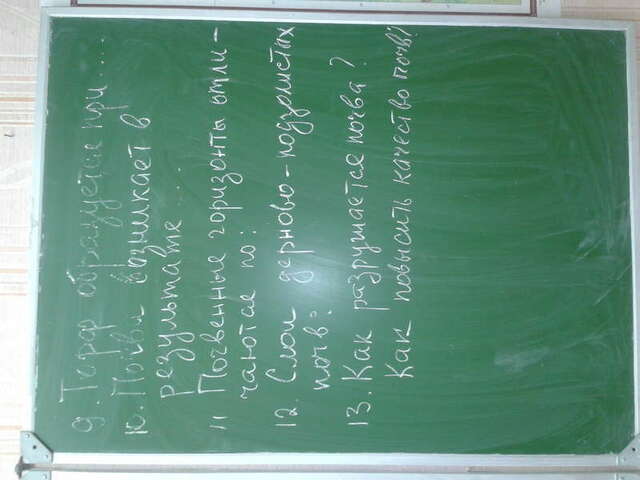 9. Торф образуется при....
10. Почва возникает в
результате ...
11 Почвенные горизонты отли-
чаются по:
12. Слои дерново-подзолистых
почв:
13. Как разрушается почва?
Как повысить качество почв?